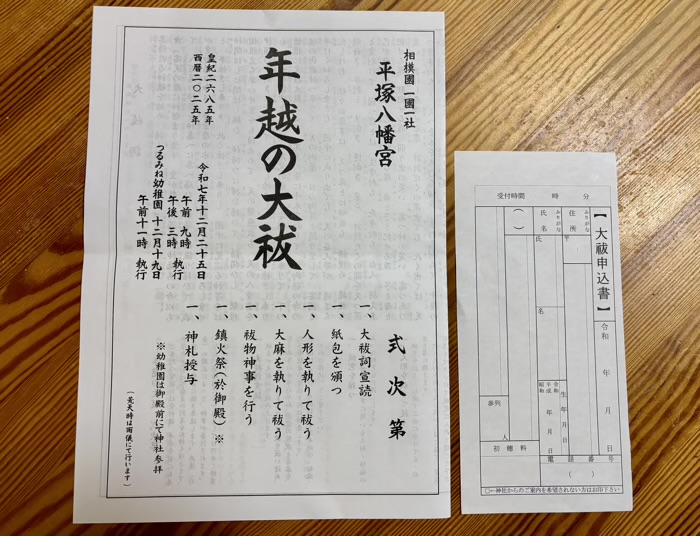 相模國一國一社
平塚八幡宮
年越の大祓
皇紀二六八五年
西暦二〇二五年
令和七年十二月二十五日
午前 九時
午後 三時 執行
つるみね幼稚園 十二月十九日
午前十一時 執行
式次第
一、大祓詞宣読
一、紙包を頒つ
一、人形を執りて祓う
一、大麻を執りて祓う
一、祓物神事を行う
一、鎮火祭(於御殿)※
一、神札授与
※幼稚園は御殿前にて神社参拝
(荒天時は雨儀にて行います)
【大祓申込書】
令和 年 月 日
ふりがな
住所
〒
ふりがな
氏名
氏
名
( )
生年月日
令和
平成
昭和
年 月 日
電話番号
( )
受付時間 時 分
参列 人
初穂料
○←神社からのご案内を希望されない方はお印下さい